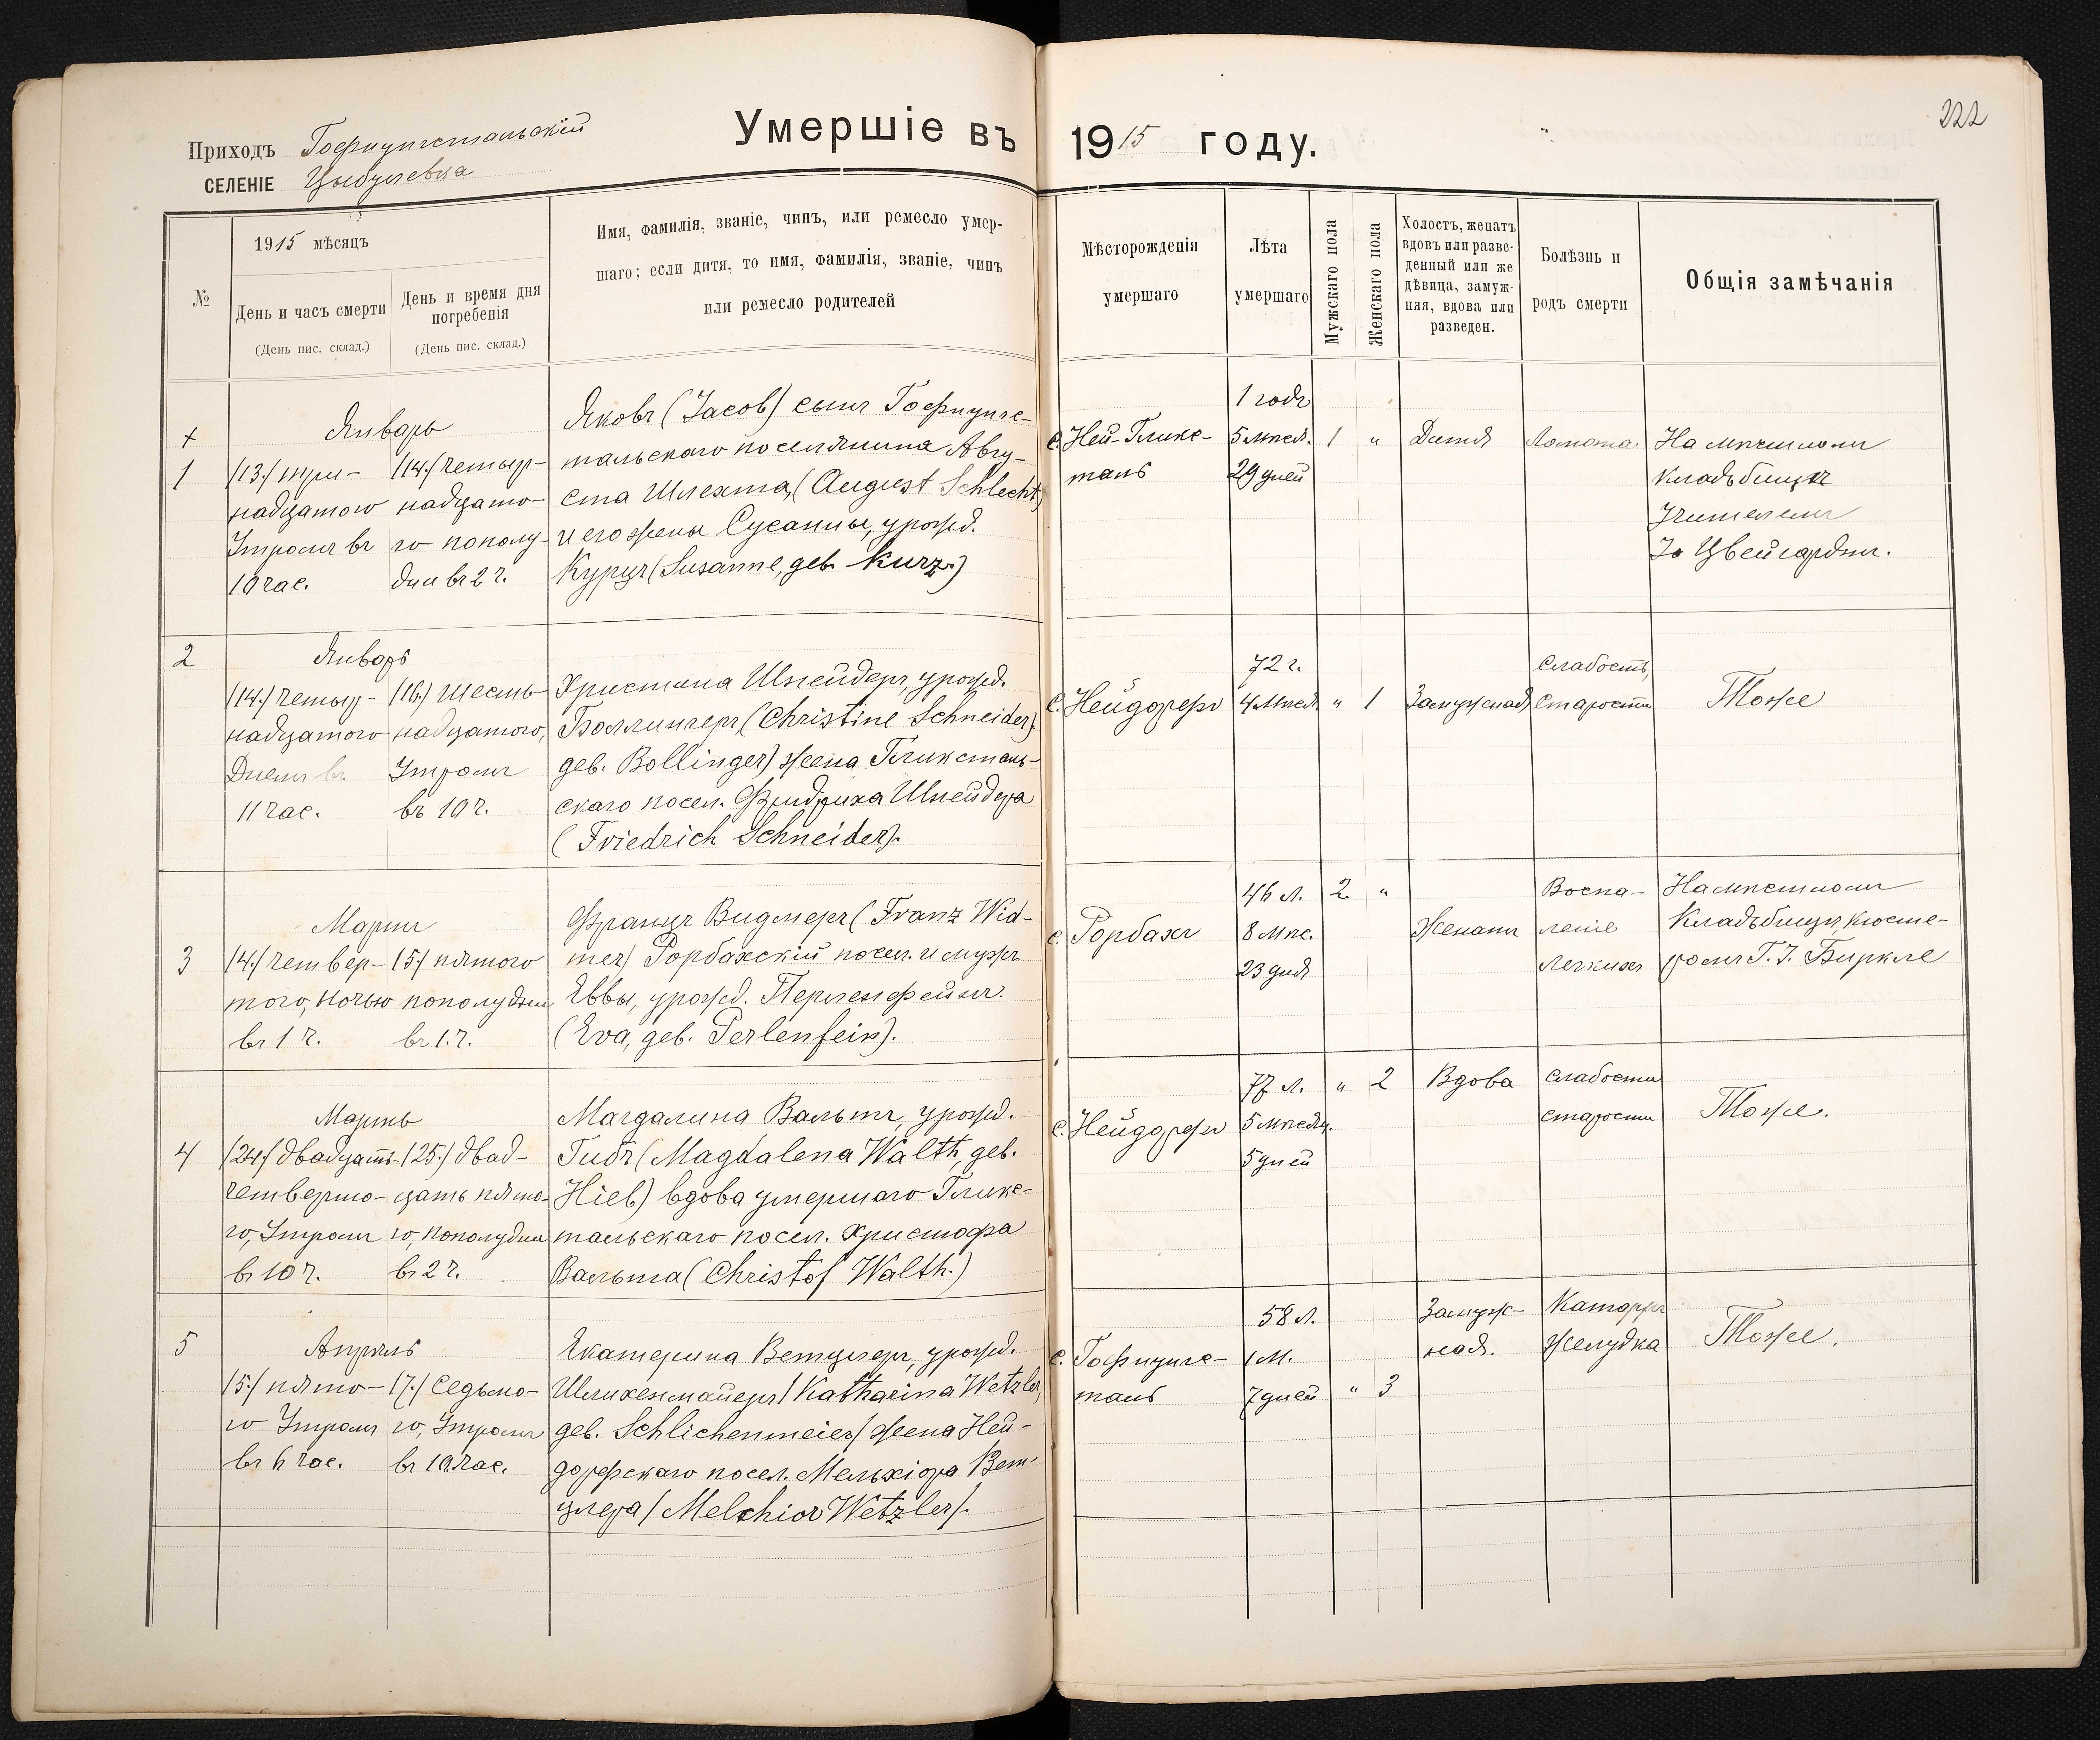 222
Приходъ Гофнунгстальскій
СЕЛЕНІЕ Цыбулевка
Умершіе въ 1915 году.
№
1915 мѣсяцъ
День и часъ смерти
(День пис. склад.)
День и время дня
погребенія
(День пис. склад.)
Имя, фамилія, званіе, чинъ, или ремесло умер-
шаго; если дитя, то имя, фамилія, званіе, чинъ
или ремесло родителей
Мѣсторожденія
умершаго
Лѣта
умершаго
Мужскаго пола
Женскаго пола
Холостъ, женатъ
вдовъ или разве-
денный или же
дѣвица, замуж-
няя, вдова или
разведен.
Болѣзнь и
родъ смерти
Общія замѣчанія
+
1
Январь
(13.) три-
надцатого
Утромъ въ
10 час.
(14.) четыр-
надцато-
го пополу-
дни въ 2 ч.
Яковъ (Jacob) сынъ Гофнунгс-
тальскаго поселянина Авгу-
ста Шлехта, (August Schlecht)
и его жены Сусанны, урожд.
Курцъ (Susanne, geb. Kurz.)
с. Ней-Гликс-
таль
1 годъ
5 мѣсяц.
29 дней
1 "
Дитя
Ломота.
На мѣстномъ
кладбищѣ
Учителемъ
Го Цвейгардтъ.
2
Январь
(14.) четыр-
надцатого
Днемъ въ
11 час.
(16.) шесть-
надцатого,
Утромъ
въ 10 ч.
Христина Шнейдеръ, урожд.
Боллингеръ, (Christine Schneider,
geb. Bollinger) жена Гликсталь-
скаго посел. Фридриха Шнейдера
(Friedrich Schneider).
с. Нейдорфъ
72 г.
4 мѣсяц.
" 1
Замужная
Слабость,
Старости
Тоже
3
Мартъ
(4.) четвер-
того, ночью
въ 1 ч.
(5.) пятого
пополудни
въ 1. ч.
Францъ Видмеръ (Franz Wid-
mer) Рорбахскій посел. и мужъ
Еввы, урожд. Перленфейнъ.
(Eva, geb. Perlenfein).
с. Рорбахъ
46 л.
8 мѣс.
23 дня
2 "
Женатъ
Воспа-
леніе
легкихъ
На мѣстномъ
кладбищѣ, кюсте-
ромъ Г. І. Биркле
4
Мартъ
(24.) двадцать-
четверто-
го, Утромъ
въ 10 ч.
(25.) двад-
цать пято-
го, пополудни
въ 2 ч.
Магдалина Вальтъ, урожд.
Гибъ (Magdalena Walth, geb.
Hieb) вдова умершаго Гликс-
тальскаго посел. Христофа
Вальта (Christof Walth.)
с. Нейдорфъ
77 л.
5 мѣсяц.
5 дней
" 2
Вдова
Слабости
старости
Тоже.
5
Апрѣль
(5.) пято-
го Утромъ
въ 6 час.
(7.) Седьмо-
го, Утромъ
въ 10 час.
Екатерина Ветцлеръ, урожд.
Шлихенмайеръ (Katharina Wetzler,
geb. Schlichenmeier) жена Ней-
дорфскаго посел. Мельхіора Вет-
цлера (Melchior Wetzler).
с. Гофнунгс-
таль
58 л.
1 м.
7 дней
" 3
Замуж-
ная.
Катарръ
желудка
Тоже.